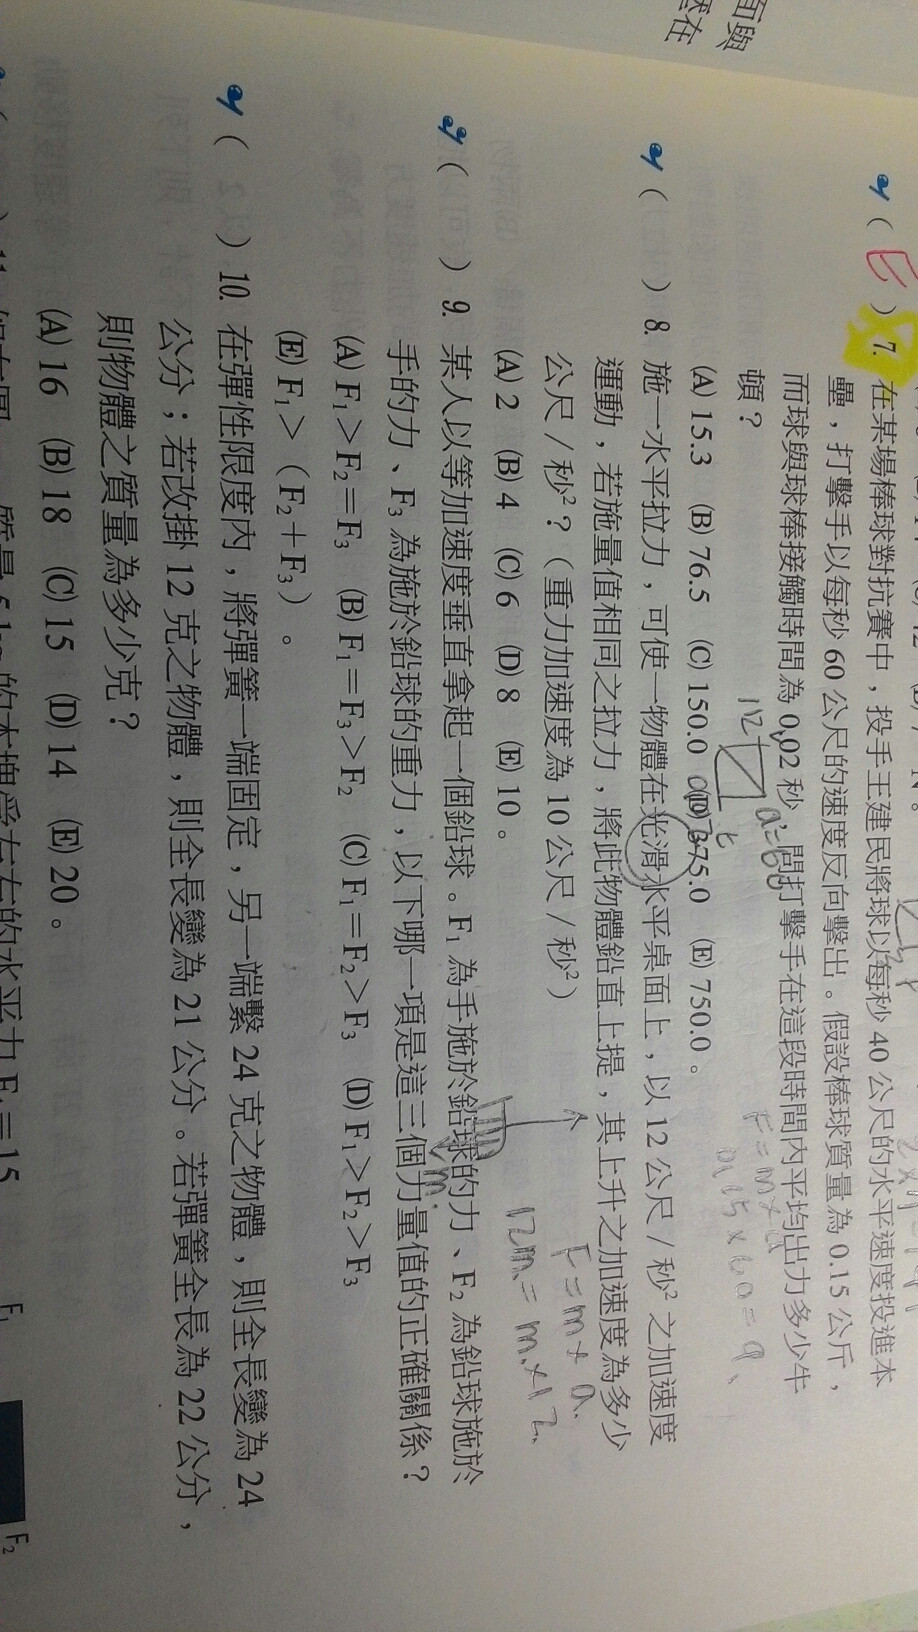 面與
在
( E ) 7. 在某場棒球對抗賽中，投手王建民將球以每秒 40 公尺的水平速度投進本
壘，打擊手以每秒 60 公尺的速度反向擊出。假設棒球質量為 0.15 公斤，
而球與球棒接觸時間為 0.02 秒，問打擊手在這段時間內平均出力多少牛
頓？
(A) 15.3 (B) 76.5 (C) 150.0 (D) 375.0 (E) 750.0。
F=m×a
0.15×60=9
( ) 8. 施一水平拉力，可使一物體在光滑水平桌面上，以 12 公尺／秒² 之加速度
運動，若施量值相同之拉力，將此物體鉛直上提，其上升之加速度為多少
公尺／秒²？（重力加速度為 10 公尺／秒²）
(A) 2 (B) 4 (C) 6 (D) 8 (E) 10。
F=m×a
12m=m×12
( ) 9. 某人以等加速度垂直拿起一個鉛球。F₁ 為手施於鉛球的力、F₂ 為鉛球施於
手的力、F₃ 為施於鉛球的重力，以下哪一項是這三個力量值的正確關係？
(A) F₁＞F₂＝F₃ (B) F₁＝F₃＞F₂ (C) F₁＝F₂＞F₃ (D) F₁＞F₂＞F₃
(E) F₁＞（F₂＋F₃）。
( ) 10. 在彈性限度內，將彈簧一端固定，另一端繫 24 克之物體，則全長變為 24
公分；若改掛 12 克之物體，則全長變為 21 公分。若彈簧全長為 22 公分，
則物體之質量為多少克？
(A) 16 (B) 18 (C) 15 (D) 14 (E) 20。
的木塊受左右的水平力 F₁＝15
F₁
F₂